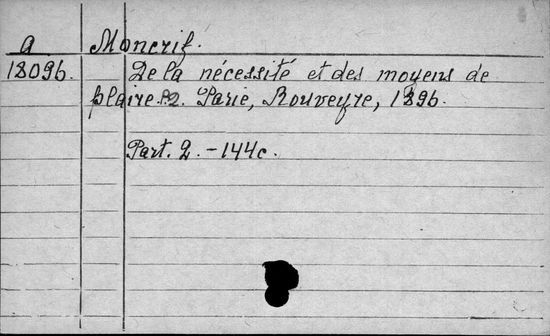 a Moncrif.
18096. De la nécessité et des moyens de
plaire. P.2. Paris, Rouveyre, 1896.
Part. 2. - 144c.